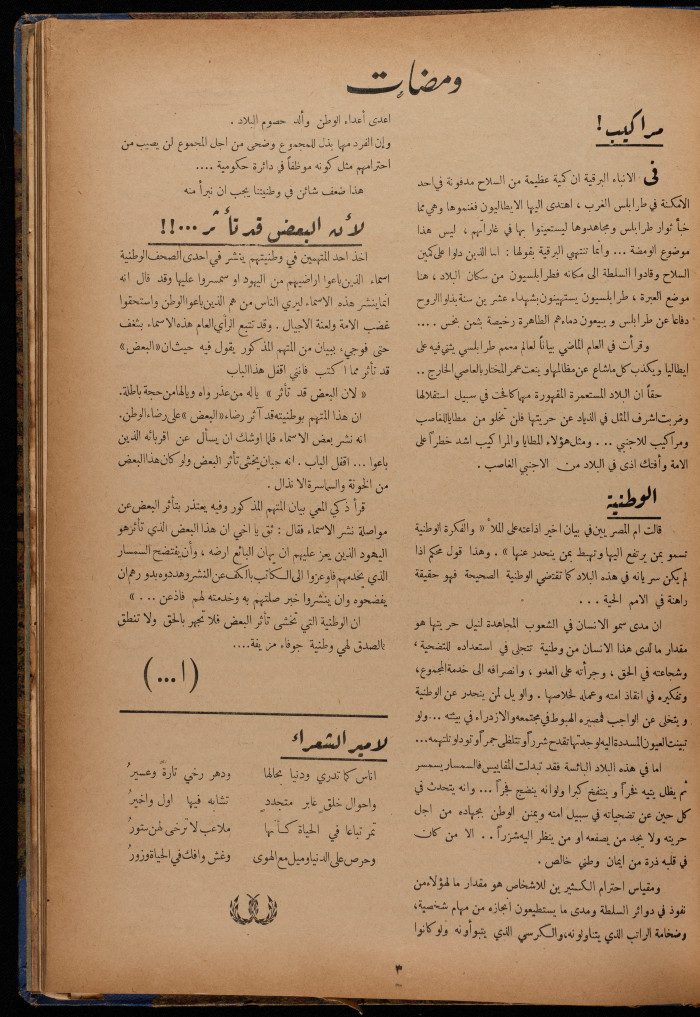 ومضات
مراكيب!
في الانباء البرقية ان كمية عظيمة من السلاح مدفونة في احد
الامكنة في طرابلس الغرب ، اهتدى اليها الايطاليون فغنموها وهي مما
خبأ ثوار طرابلس ومجاهدوها ليستعينوا بها في غاراتهم ، ليس هذا
موضوع الومضة ... وانما تنتهي البرقية بقولها : اما الذين دلوا على كمين
السلاح وقادوا السلطة الى مكانه فطرابلسيون من سكان البلاد ، هنا
موضع العبرة ، طرابلسيون يستهينون بشهداء عشرين سنة بذلوا الروح
دفاعا عن طرابلس و يبيعون دماءهم الطاهرة رخيصة بثمن بخس ....
وقرأت في العام الماضي بياناً لعالم معمم طرابلسي يثني فيه على
ايطاليا ويكذب كل ماشاع عن مظالمها و ينعت عمر المختار بالعاصي الخارج ..
حقاً ان البلاد المستعمرة المقهورة مهما كافحت في سبيل استقلالها
وضربت اشرف المثل في الذياد عن حريتها فلن تخلو من مطايا للغاصب
ومراكيب للاجنبي ... ومثل هؤلاء المطايا والمراكيب اشد خطراً على
الامة وأفتك اذى في البلاد من الاجنبي الغاصب .
الوطنية
قالت ام المصريين في بيان اخير اذاعته على الملأ « والفكرة الوطنية
تسمو بمن يرتفع اليها وتهبط بمن ينحدر عنها » . وهذا قول محكم اذا
لم يكن سر يانه في هذه البلاد كما تقتضي الوطنية الصحيحة فهو حقيقة
راهنة في الامم الحية ...
ان مدى سمو الانسان في الشعوب المجاهدة لنيل حريتها هو
مقدار ما لدى هذا الانسان من وطنية تتجلى في استعداده للتضحية ،
وشجاعته في الحق ، وجرأته على العدو ، وانصرافه الى خدمة المجموع،
وتفكيره في انقاذ امته وعمله لخلاصها . والويل لمن ينحدر عن الوطنية
و يتخلى عن الواجب فمصيره الهبوط في مجتمعه والازدراء في بيئته ... ولو
تبينت العيون المسددة اليه لوجدتها تقدح شرراً وتتلظى جمراً تود لو تلتهمه...
اما في هذه البلاد البائسة فقد تبدلت المقاييس فالسمسار يسمسر
ثم يظل يتيه فخراً و ينتفخ كبرا ولوانه ينضح فجراً ... وانه يتحدث في
كل حين عن تضحياته في سبيل امته ويمنن الوطن بجهاده من اجل
حريته ولا يجد من يصفعه او من ينظر اليه شزراً .. الا من كان
في قلبه ذرة من ايمان وطني خالص .
ومقياس احترام الكثيرين للاشخاص هو مقدار ما لهؤلاء من
نفوذ في دوائر السلطة ومدى ما يستطيعون انجازه من مهام شخصية،
وضخامة الراتب الذي يتناولونه، والكرسي الذي يتبوأونه ولو كانوا
اعدى أعداء الوطن وألد خصوم البلاد .
وإن الفرد مهما بذل للمجموع وضحى من اجل المجموع لن يصيب من
احترامهم مثل كونه موظفاً في دائرة حكومية ....
هذا ضعف شائن في وطنيتنا يجب ان نبرأ منه
لأن البعض قد تأثر ...!!
اخذ احد المتهمين في وطنيتهم ينشر في احدى الصحف الوطنية
اسماء الذين باعوا اراضيهم من اليهود او سمسروا عليها وقد قال انه
انما ينشر هذه الاسماء ليري الناس من هم الذين باعوا الوطن واستحقوا
غضب الامة ولعنة الاجيال . وقد تتبع الرأي العام هذه الاسماء بشغف
حتى فوجيء ببيان من المتهم المذكور يقول فيه حيث ان «البعض»
قد تأثر مما اكتب فانني اقفل هذا الباب
« لان البعض قد تأثر » ياله من عذر واه ويالها من حجة باطلة.
ان هذا المتهم بوطنيته قد آثر رضاء «البعض» على رضاء الوطن.
انه نشر بعض الاسماء فلما اوشك ان يسأل عن اقربائه الذين
باعوا ... اقفل الباب . انه جبان يخشى تأثر البعض ولو كان هذا البعض
من الخونة والسماسرة الانذال .
قرأ ذكي المعي بيان المتهم المذكور وفيه يعتذر بتأثر البعض عن
مواصلة نشر الاسماء فقال : ثق يا اخي ان هذا البعض الذي تأثر هو
اليهود الذين يعز عليهم ان يهان البائع ارضه ، وأن يفتضح السمسار
الذي يخدمهم فاوعزوا الى الكاتب بالكف عن النشر وهددوه بدورهم ان
يفضحوه وان ينشروا خبر صلتهم به وخدمته لهم فاذعن ... »
ان الوطنية التي تخشى تأثر البعض فلا تجهر بالحق ولا تنطق
بالصدق لهي وطنية جوفاء مزيفة....
(ا...)
لامير الشعراء
اناس كما تدري ودنيا بحالها ودهر رخي تارةً وعسيرُ
واحوال خلقٍ غابر متجددٍ تشابه فيها اول واخيرُ
تمر تباعا في الحياة كأنها ملاعب لا ترخى لهن ستورُ
وحرص على الدنيا وميل مع الهوى وغش وافك في الحياة وزورُ
٣